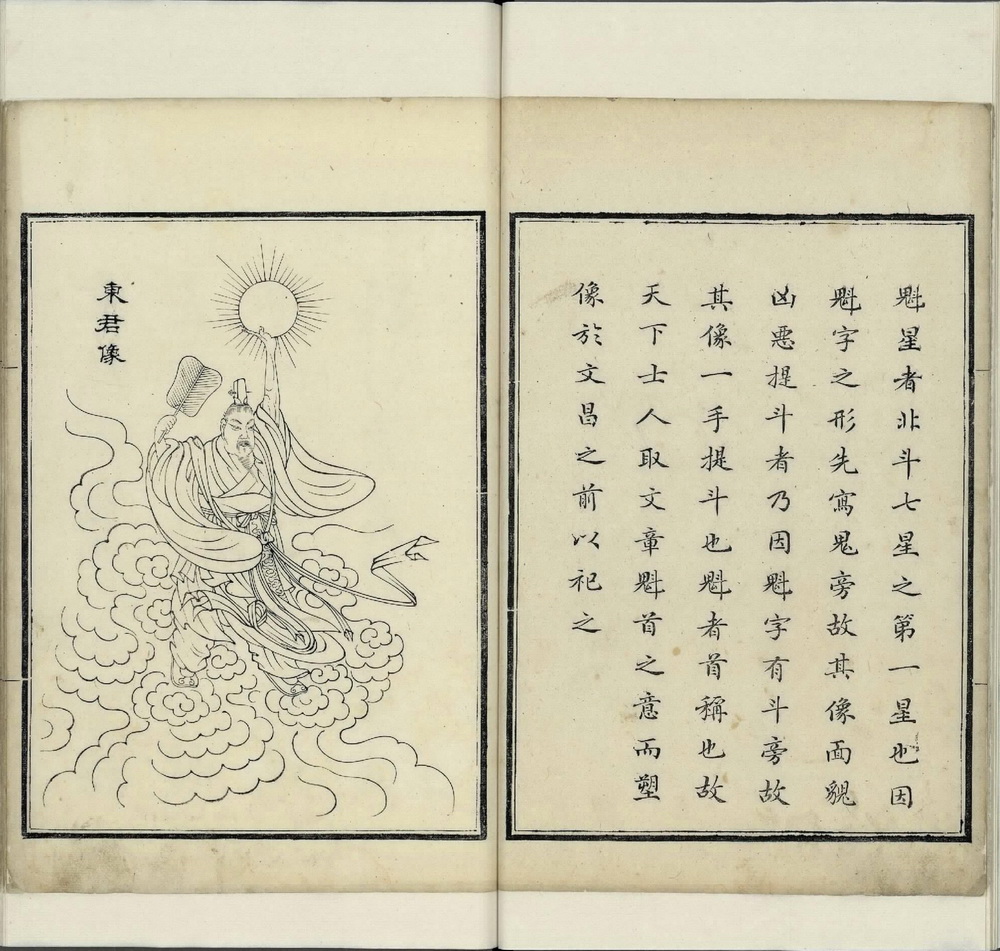 魁星者北斗七星之第一星也因
魁字之形先寫鬼旁故其像面貌
凶惡提斗者乃因魁字有斗旁故
其像一手提斗也魁者首稱也故
天下士人取文章魁首之意而塑
像於文昌之前以祀之
東君像